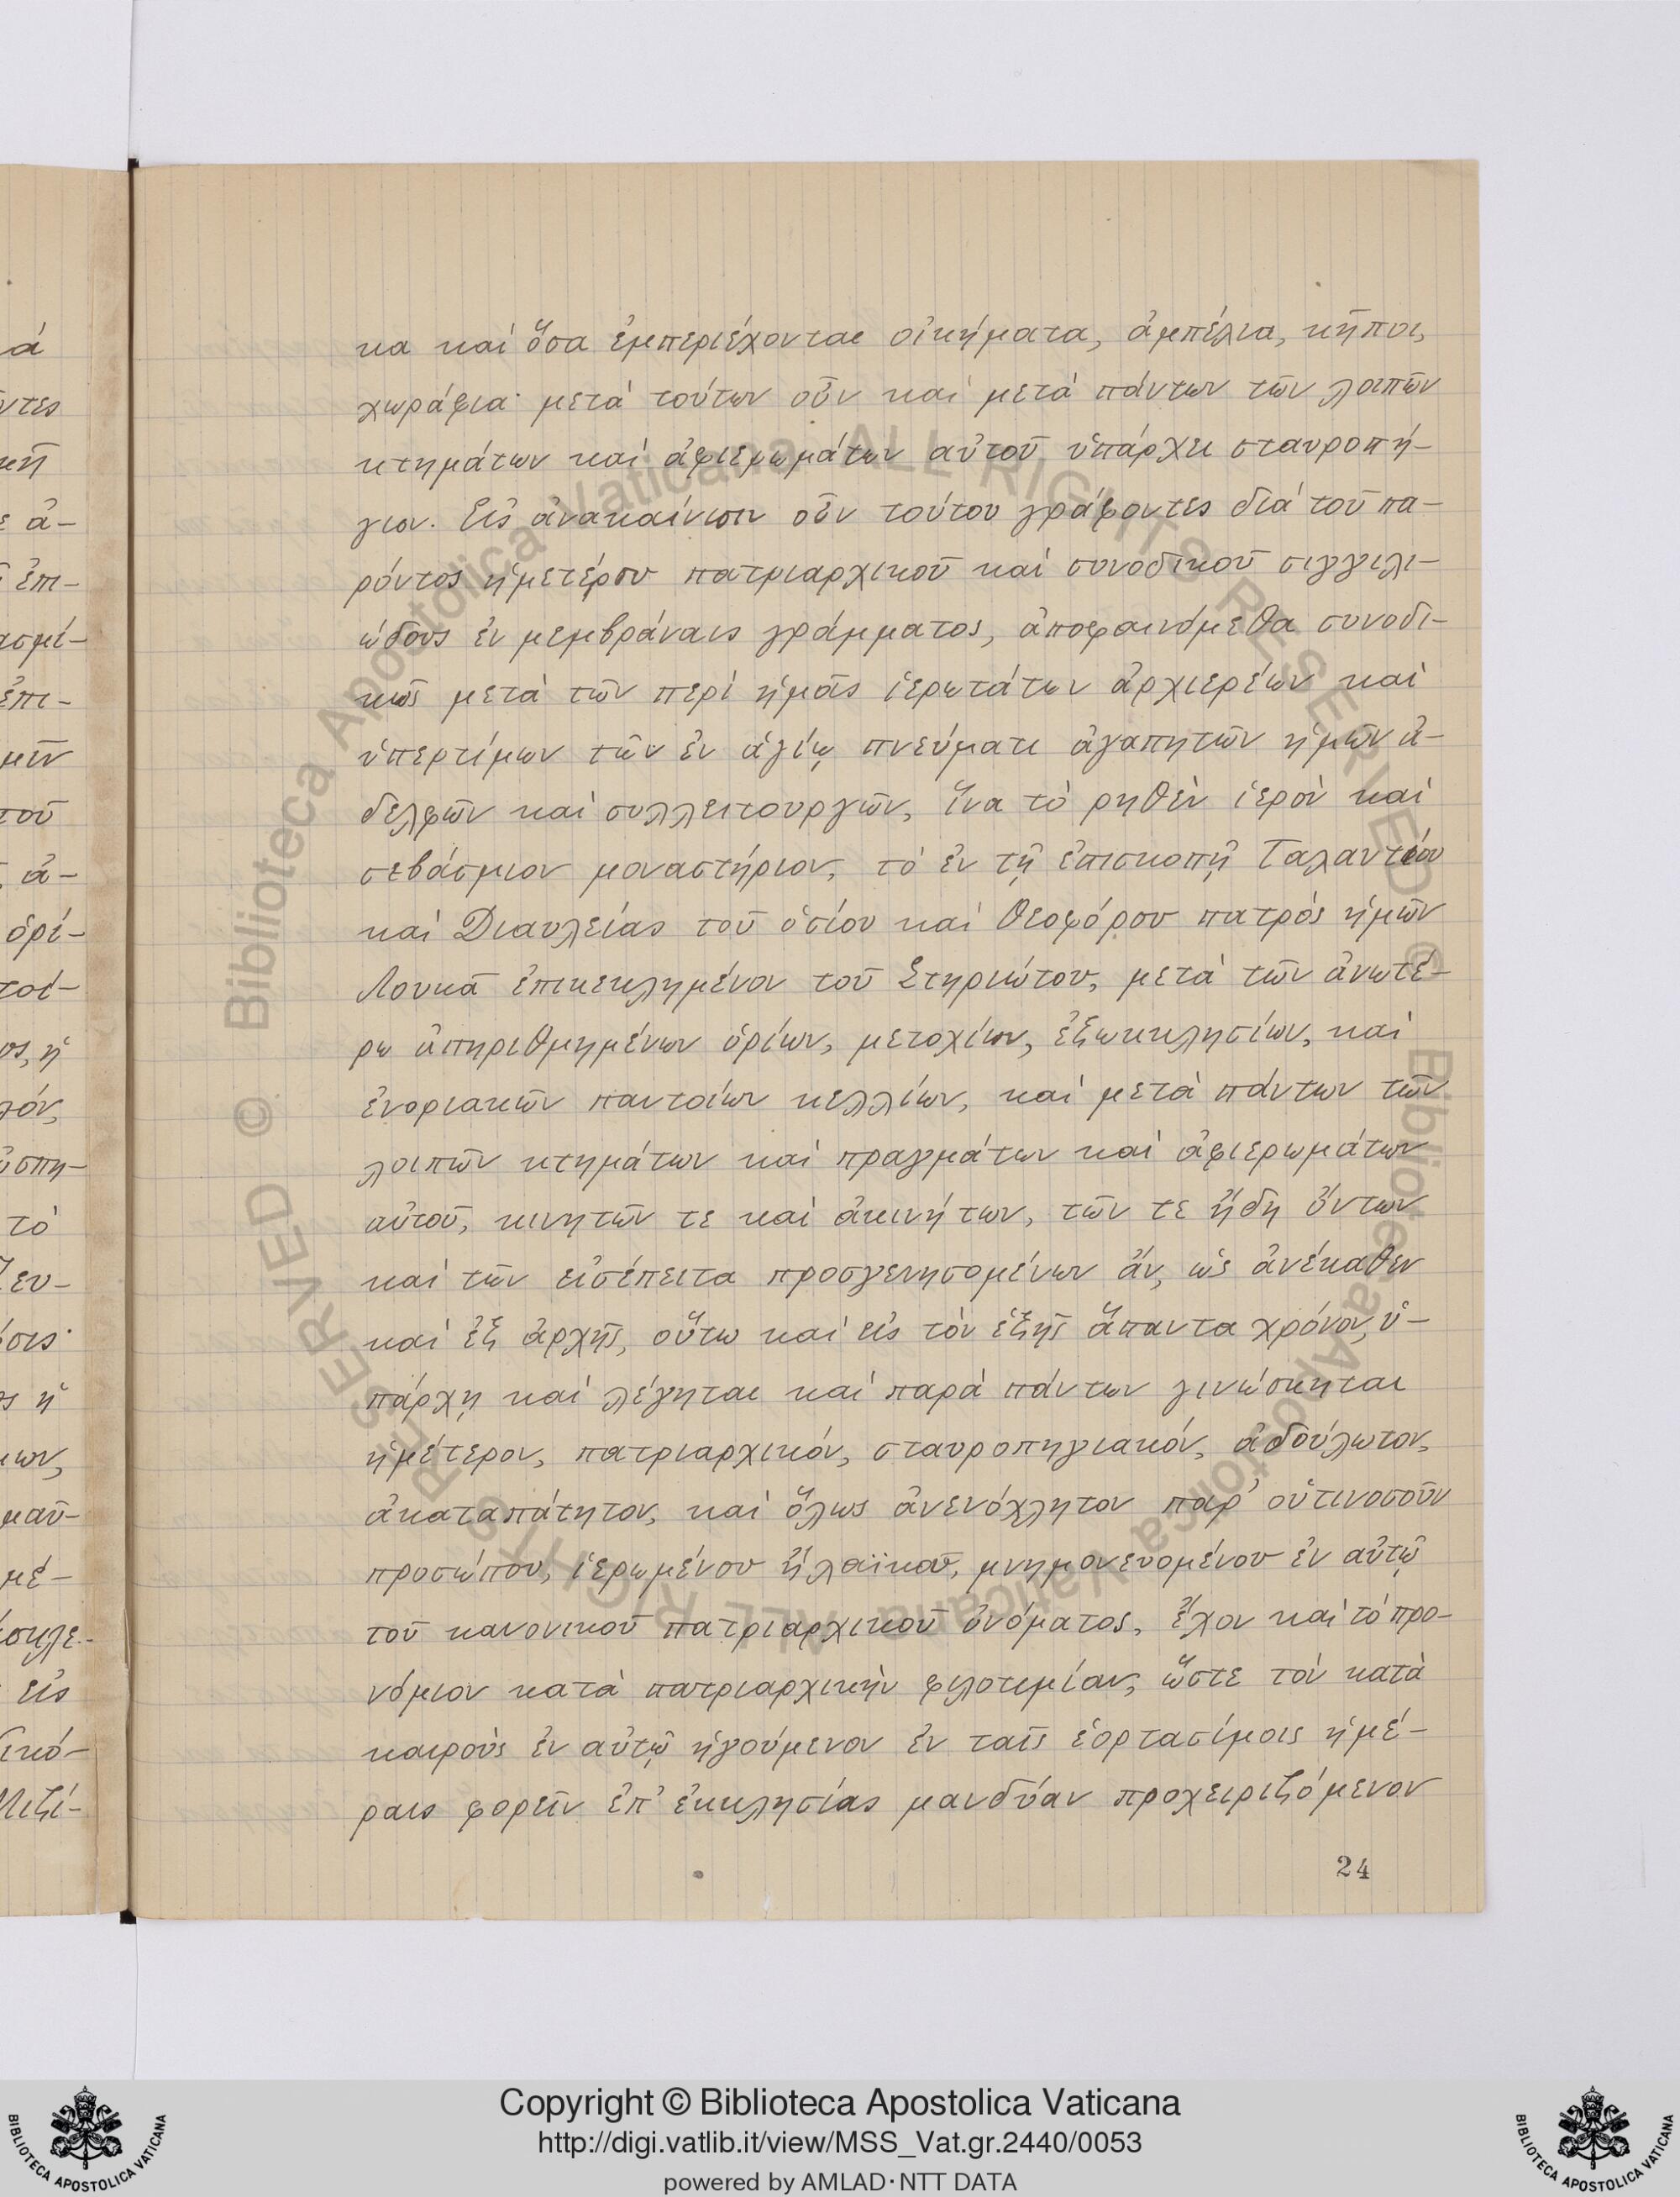 κα καὶ ὅσα ἐμπεριέχονται οἰκήματα, ἀμπέλια, κῆποι,
χωράφια· μετὰ τούτων οὖν καὶ μετὰ πάντων τῶν λοιπῶν
κτημάτων καὶ ἀφιερωμάτων αὐτοῦ ὑπάρχει σταυροπή-
γιον. Εἰς ἀνακαίνισιν οὖν τούτου γράφοντες διὰ τοῦ πα-
ρόντος ἡμετέρου πατριαρχικοῦ καὶ συνοδικοῦ σιγγιλι-
ώδους ἐν μεμβράναις γράμματος, ἀποφαινόμεθα συνοδι-
κῶς μετὰ τῶν περὶ ἡμᾶς ἱερωτάτων ἀρχιερέων καὶ
ὑπερτίμων τῶν ἐν ἁγίῳ πνεύματι ἀγαπητῶν ἡμῶν ἀ-
δελφῶν καὶ συλλειτουργῶν, ἵνα τὸ ρηθὲν ἱερὸν καὶ
σεβάσμιον μοναστήριον, τὸ ἐν τῇ ἐπισκοπῇ Ταλαντίου
καὶ Διαυλείας τοῦ ὁσίου καὶ θεοφόρου πατρὸς ἡμῶν
Λουκᾶ ἐπικεκλημένον τοῦ Στηριώτου, μετὰ τῶν ἀνωτέ-
ρω ἀπηριθμημένων ὁρίων, μετοχίων, ἐξωκκλησίων, καὶ
ἐνοριακῶν παντοίων κελλίων, καὶ μετὰ πάντων τῶν
λοιπῶν κτημάτων καὶ πραγμάτων καὶ ἀφιερωμάτων
αὐτοῦ, κινητῶν τε καὶ ἀκινήτων, τῶν τε ἤδη ὄντων
καὶ τῶν εἰσέπειτα προσγενησομένων ἄν, ὡς ἀνέκαθεν
καὶ ἐξ ἀρχῆς, οὕτω καὶ εἰς τὸν ἑξῆς ἅπαντα χρόνον, ὑ-
πάρχῃ καὶ λέγηται καὶ παρὰ πάντων γινώσκηται
ἡμέτερον, πατριαρχικόν, σταυροπηγιακόν, ἀδούλωτον,
ἀκαταπάτητον, καὶ ὅλως ἀνενόχλητον παρ' οὑτινοσοῦν
προσώπου, ἱερωμένου ἢ λαϊκοῦ, μνημονευομένου ἐν αὐτῷ
τοῦ κανονικοῦ πατριαρχικοῦ ὀνόματος, ἔχον καὶ τὸ προ-
νόμιον κατὰ πατριαρχικὴν φιλοτιμίαν, ὥστε τὸν κατὰ
καιροὺς ἐν αὐτῷ ἡγούμενον ἐν ταῖς ἑορτασίμοις ἡμέ-
ραις φορεῖν ἐπ' ἐκκλησίας μανδύαν προχειριζόμενον
24
Copyright © Biblioteca Apostolica Vaticana
http://digi.vatlib.it/view/MSS_Vat.gr.2440/0053
powered by AMLAD·NTT DATA